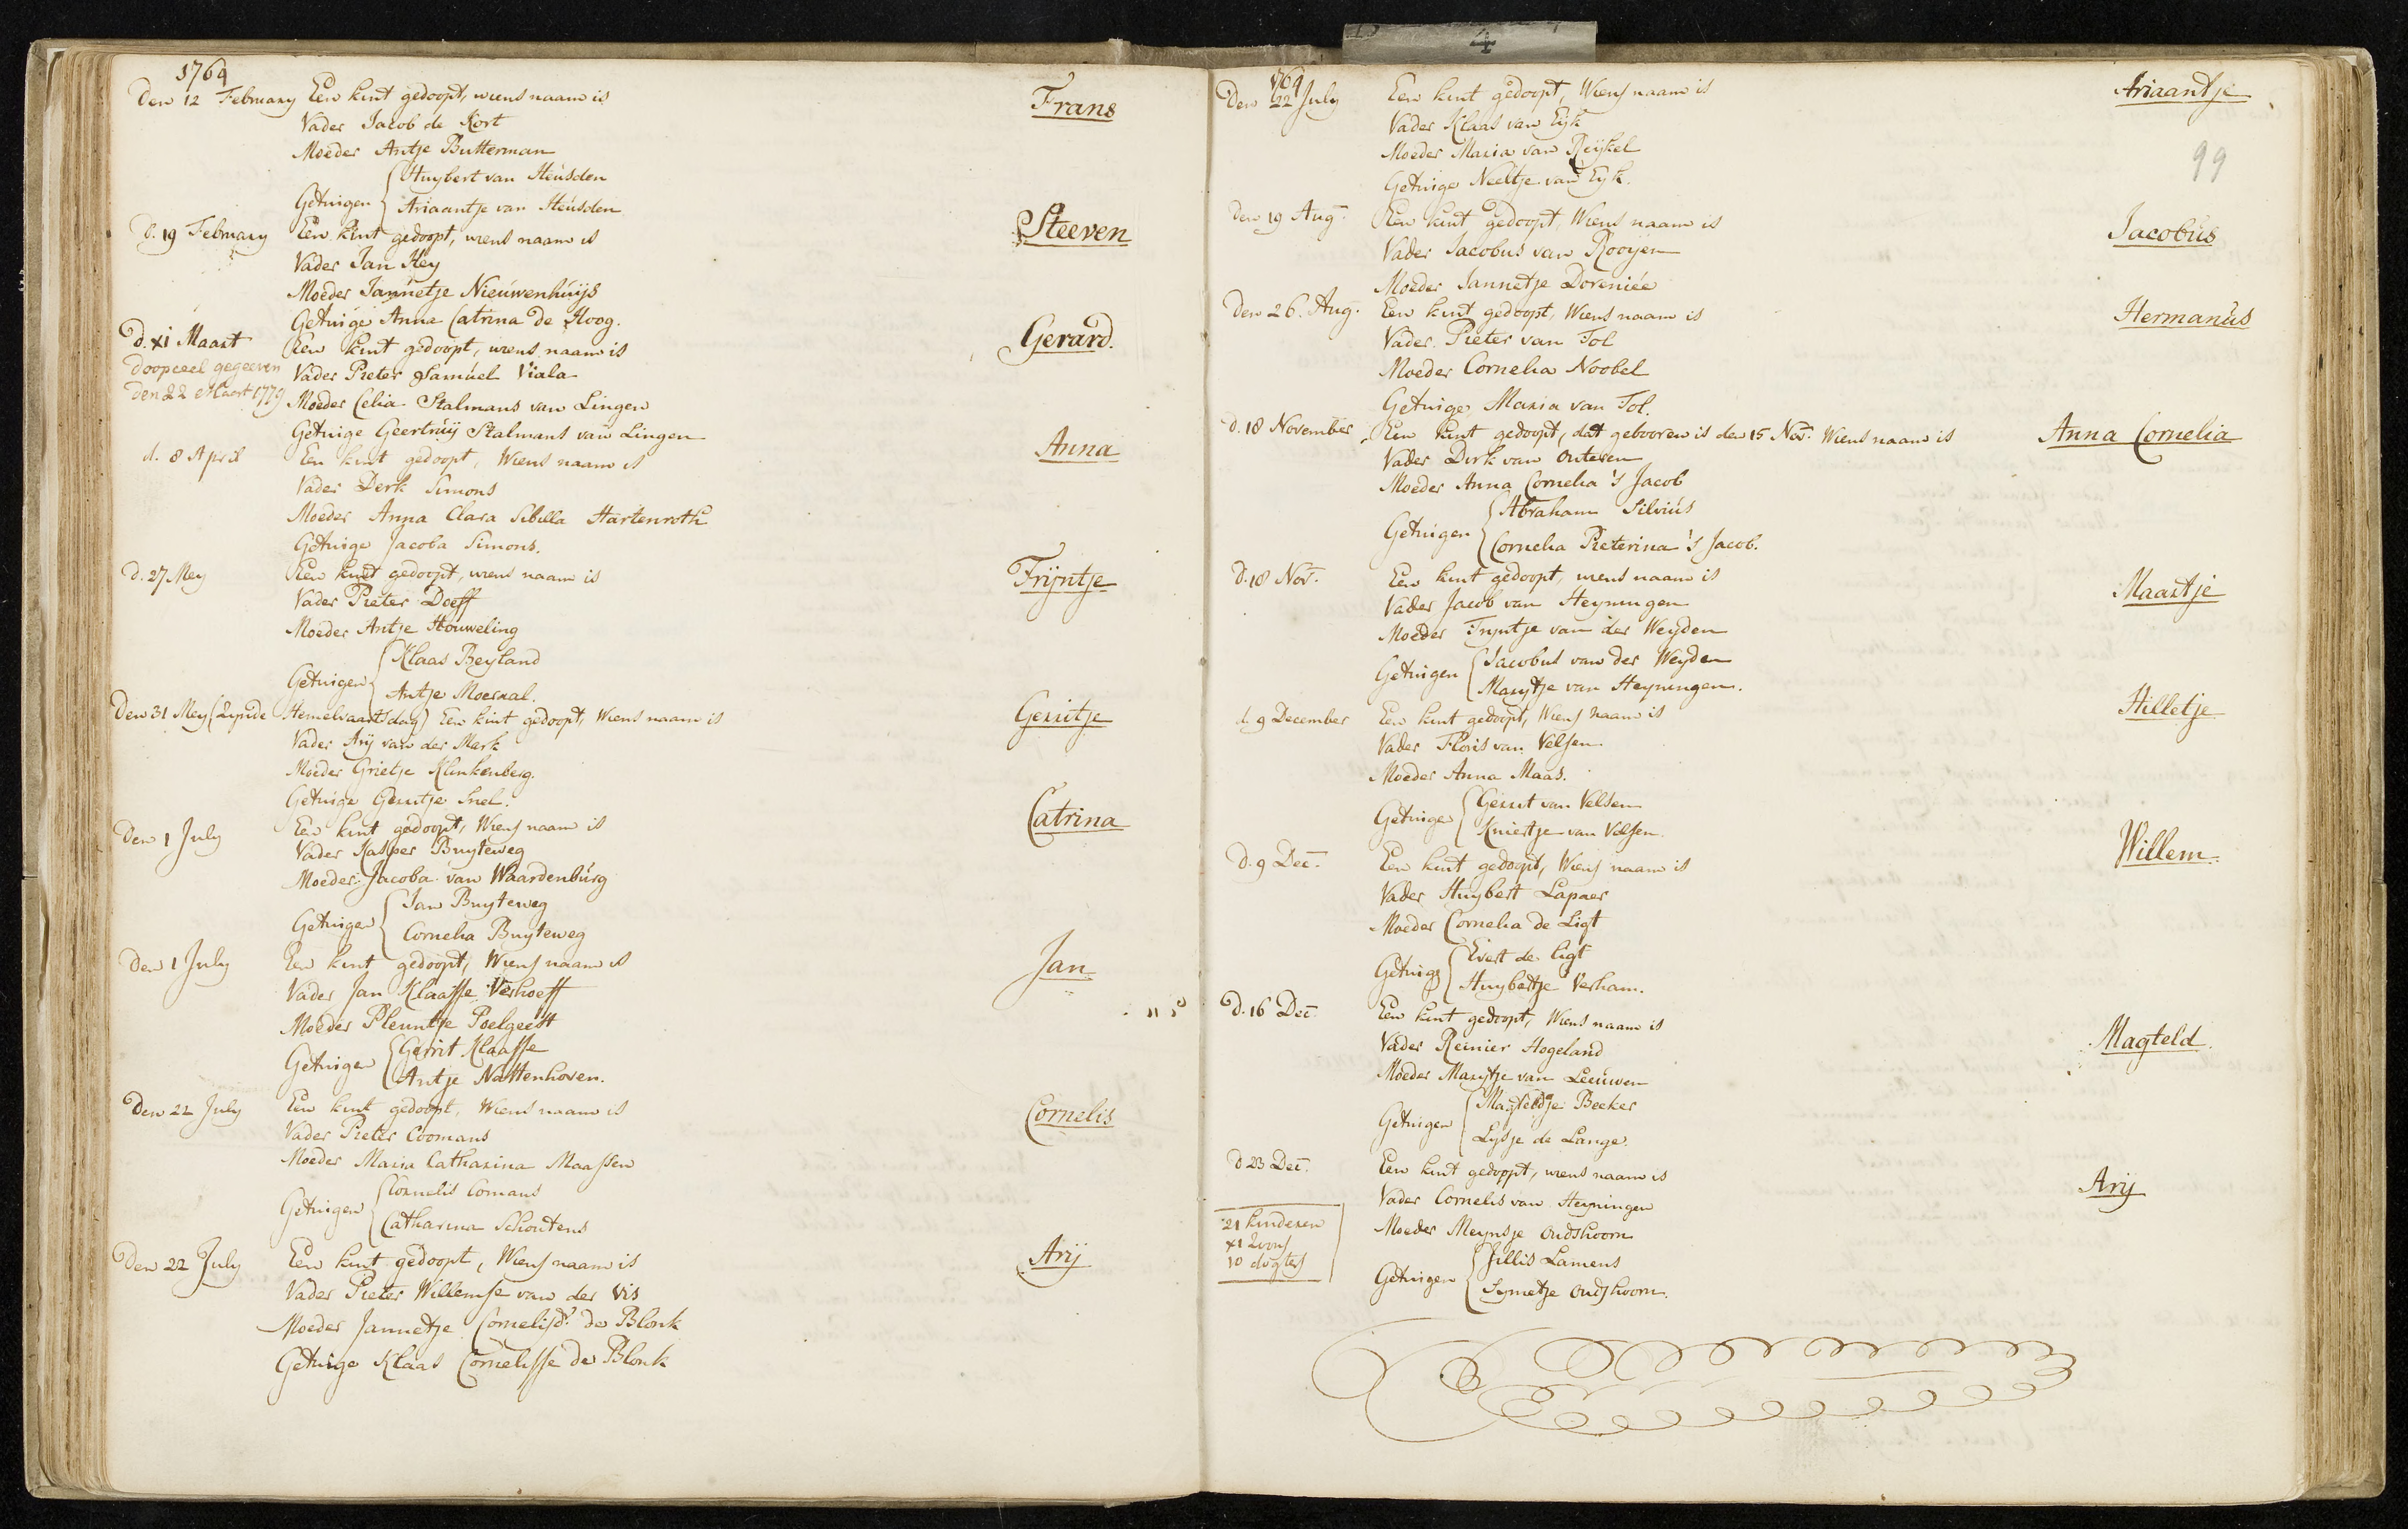 1764
Den 12 February Een kint gedoopt, wiens naam is Frans
Vader Jacob de Kort
Moeder Antje Butterman
Getuigen { Huybert van Heusden
Ariaantje van Heusden
d. 19 February Een kint gedoopt, wiens naam is Steeven
Vader Jan Hey
Moeder Jannetje Nieuwenhuijs
Getuige Anna Catrina de Hoog.
d. xi Maart Een kint gedoopt, wiens naam is Gerard.
doopceel gegeeven Vader Pieter Samuel Viala
den 22 Maart 1779 Moeder Celia Stalmans van Lingen
Getuige Geertruij Stalmans van Lingen
d. 8 April Een kint gedoopt, Wiens naam is Anna
Vader Derk Simons
Moeder Anna Clara Sibilla Hartenroth
Getuige Jacoba Simons.
d. 27 Mey Een kint gedoopt, wiens naam is Trijntje
Vader Pieter Doeff
Moeder Antje Houweling
Getuigen { Klaas Beyland
Antje Moerkal.
Den 31 Mey (Zynde Hemelvaartsdag) Een kint gedoopt, Wiens naam is Gerritje
Vader Arij van der Mark
Moeder Grietje Klinkenberg.
Getuige Gerritje Snel.
Den 1 July Een kint gedoopt, Wiens naam is Catrina
Vader Kasper Buyteweg
Moeder Jacoba van Waardenburg
Getuigen { Jan Buyteweg
Cornelia Buyteweg
Den 1 July Een kint gedoopt, Wiens naam is Jan
Vader Jan Klaasse Verhoeff
Moeder Pleuntje Poelgeest
Getuigen { Gerrit Klaasse
Antje Nattenhoven.
Den 22 July Een kint gedoopt, Wiens naam is Cornelis
Vader Pieter Coomans
Moeder Maria Catharina Maassen
Getuigen { Cornelis Comans
Catharina Schoutens
Den 22 July Een kint gedoopt, Wiens naam is Arij
Vader Pieter Willemse van der Vis
Moeder Jannetje Cornelisd.r de Blonk
Getuige Klaas Cornelisse de Blonk
4
1764
Den 22 July Een kint gedoopt, Wiens naam is Ariaantje
Vader Klaas van Eyk
Moeder Maria van Reijkel
99
Getuige Neeltje van Eyk.
Den 19 Aug. Een kint gedoopt, Wiens naam is Jacobus
Vader Jacobus van Rooijen
Moeder Jannetje Doreniée
Den 26. Aug. Een kint gedoopt, Wiens naam is Hermanus
Vader Pieter van Tol
Moeder Cornelia Noobel
Getuige Maria van Tol.
d. 18 November Een kint gedoopt, dat gebooren is den 15 Nov. Wiens naam is Anna Cornelia
Vader Dirk van Outeren
Moeder Anna Cornelia 's Jacob
Getuigen { Abraham Silvius
Cornelia Pieterina 's Jacob.
d. 18 Nov. Een kint gedoopt, wiens naam is Maartje
Vader Jacob van Heyningen
Moeder Tryntje van der Weyden
Getuigen { Jacobus van der Weyden
Marytje van Heyningen.
d. 9 December Een kint gedoopt, Wiens naam is Hilletje
Vader Floris van Velsen
Moeder Anna Maas.
Getuigen { Gerrit van Velsen
Kniertje van Velsen.
d. 9 Dec. Een kint gedoopt, Wiens naam is Willem
Vader Huybert Lapaer
Moeder Cornelia de Ligt
Getuige { Evert de Ligt
Huybertje Verham.
d. 16 Dec. Een kint gedoopt, Wiens naam is Magteld
Vader Reinier Hogeland
Moeder Marytje van Leeuwen
Getuigen { Magteldje Beeker
Lysje de Lange.
d 23 Dec. Een kint gedoppt, wiens naam is Arij
Vader Cornelis van Heyningen
21 kinderen Moeder Meynsje Oudshoorn
xi Zoons
10 dogters Getuigen { Jillis Lamens
Symetje Oudshoorn.